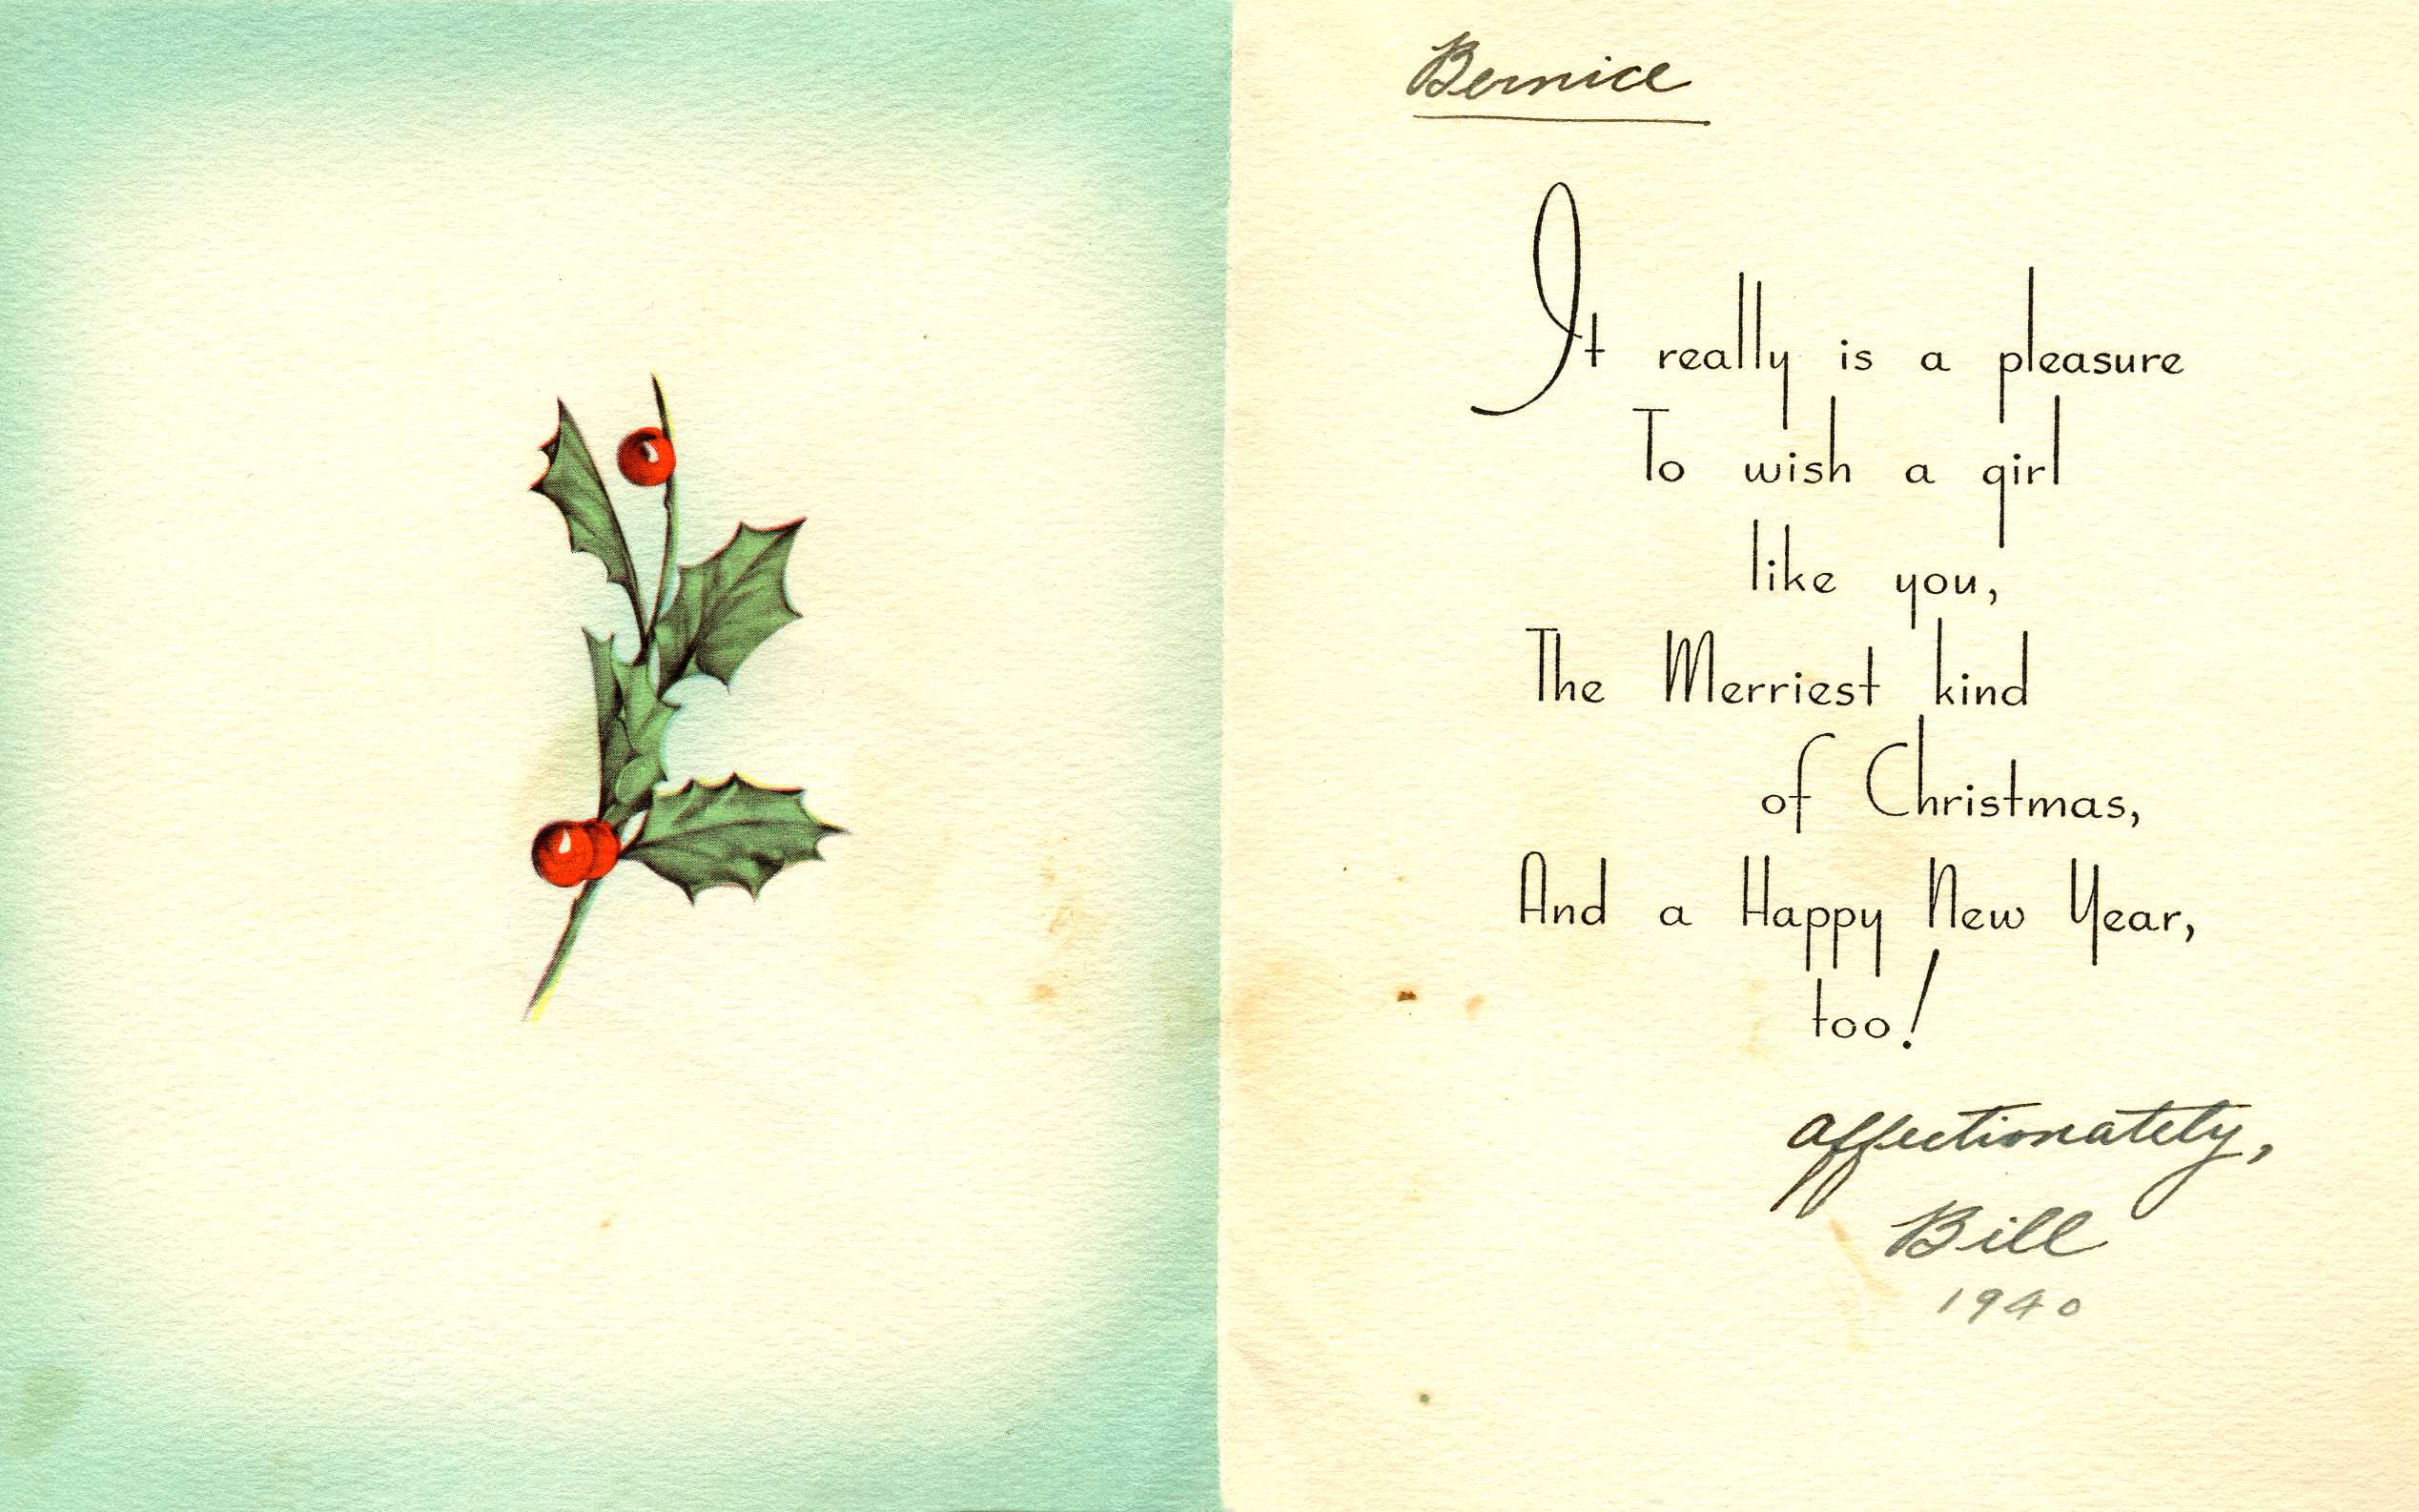 Bernice
It really is a pleasure
To wish a girl
like you,
The Merriest kind
of Christmas,
And a Happy New Year,
too!
affectionately,
Bill
1940